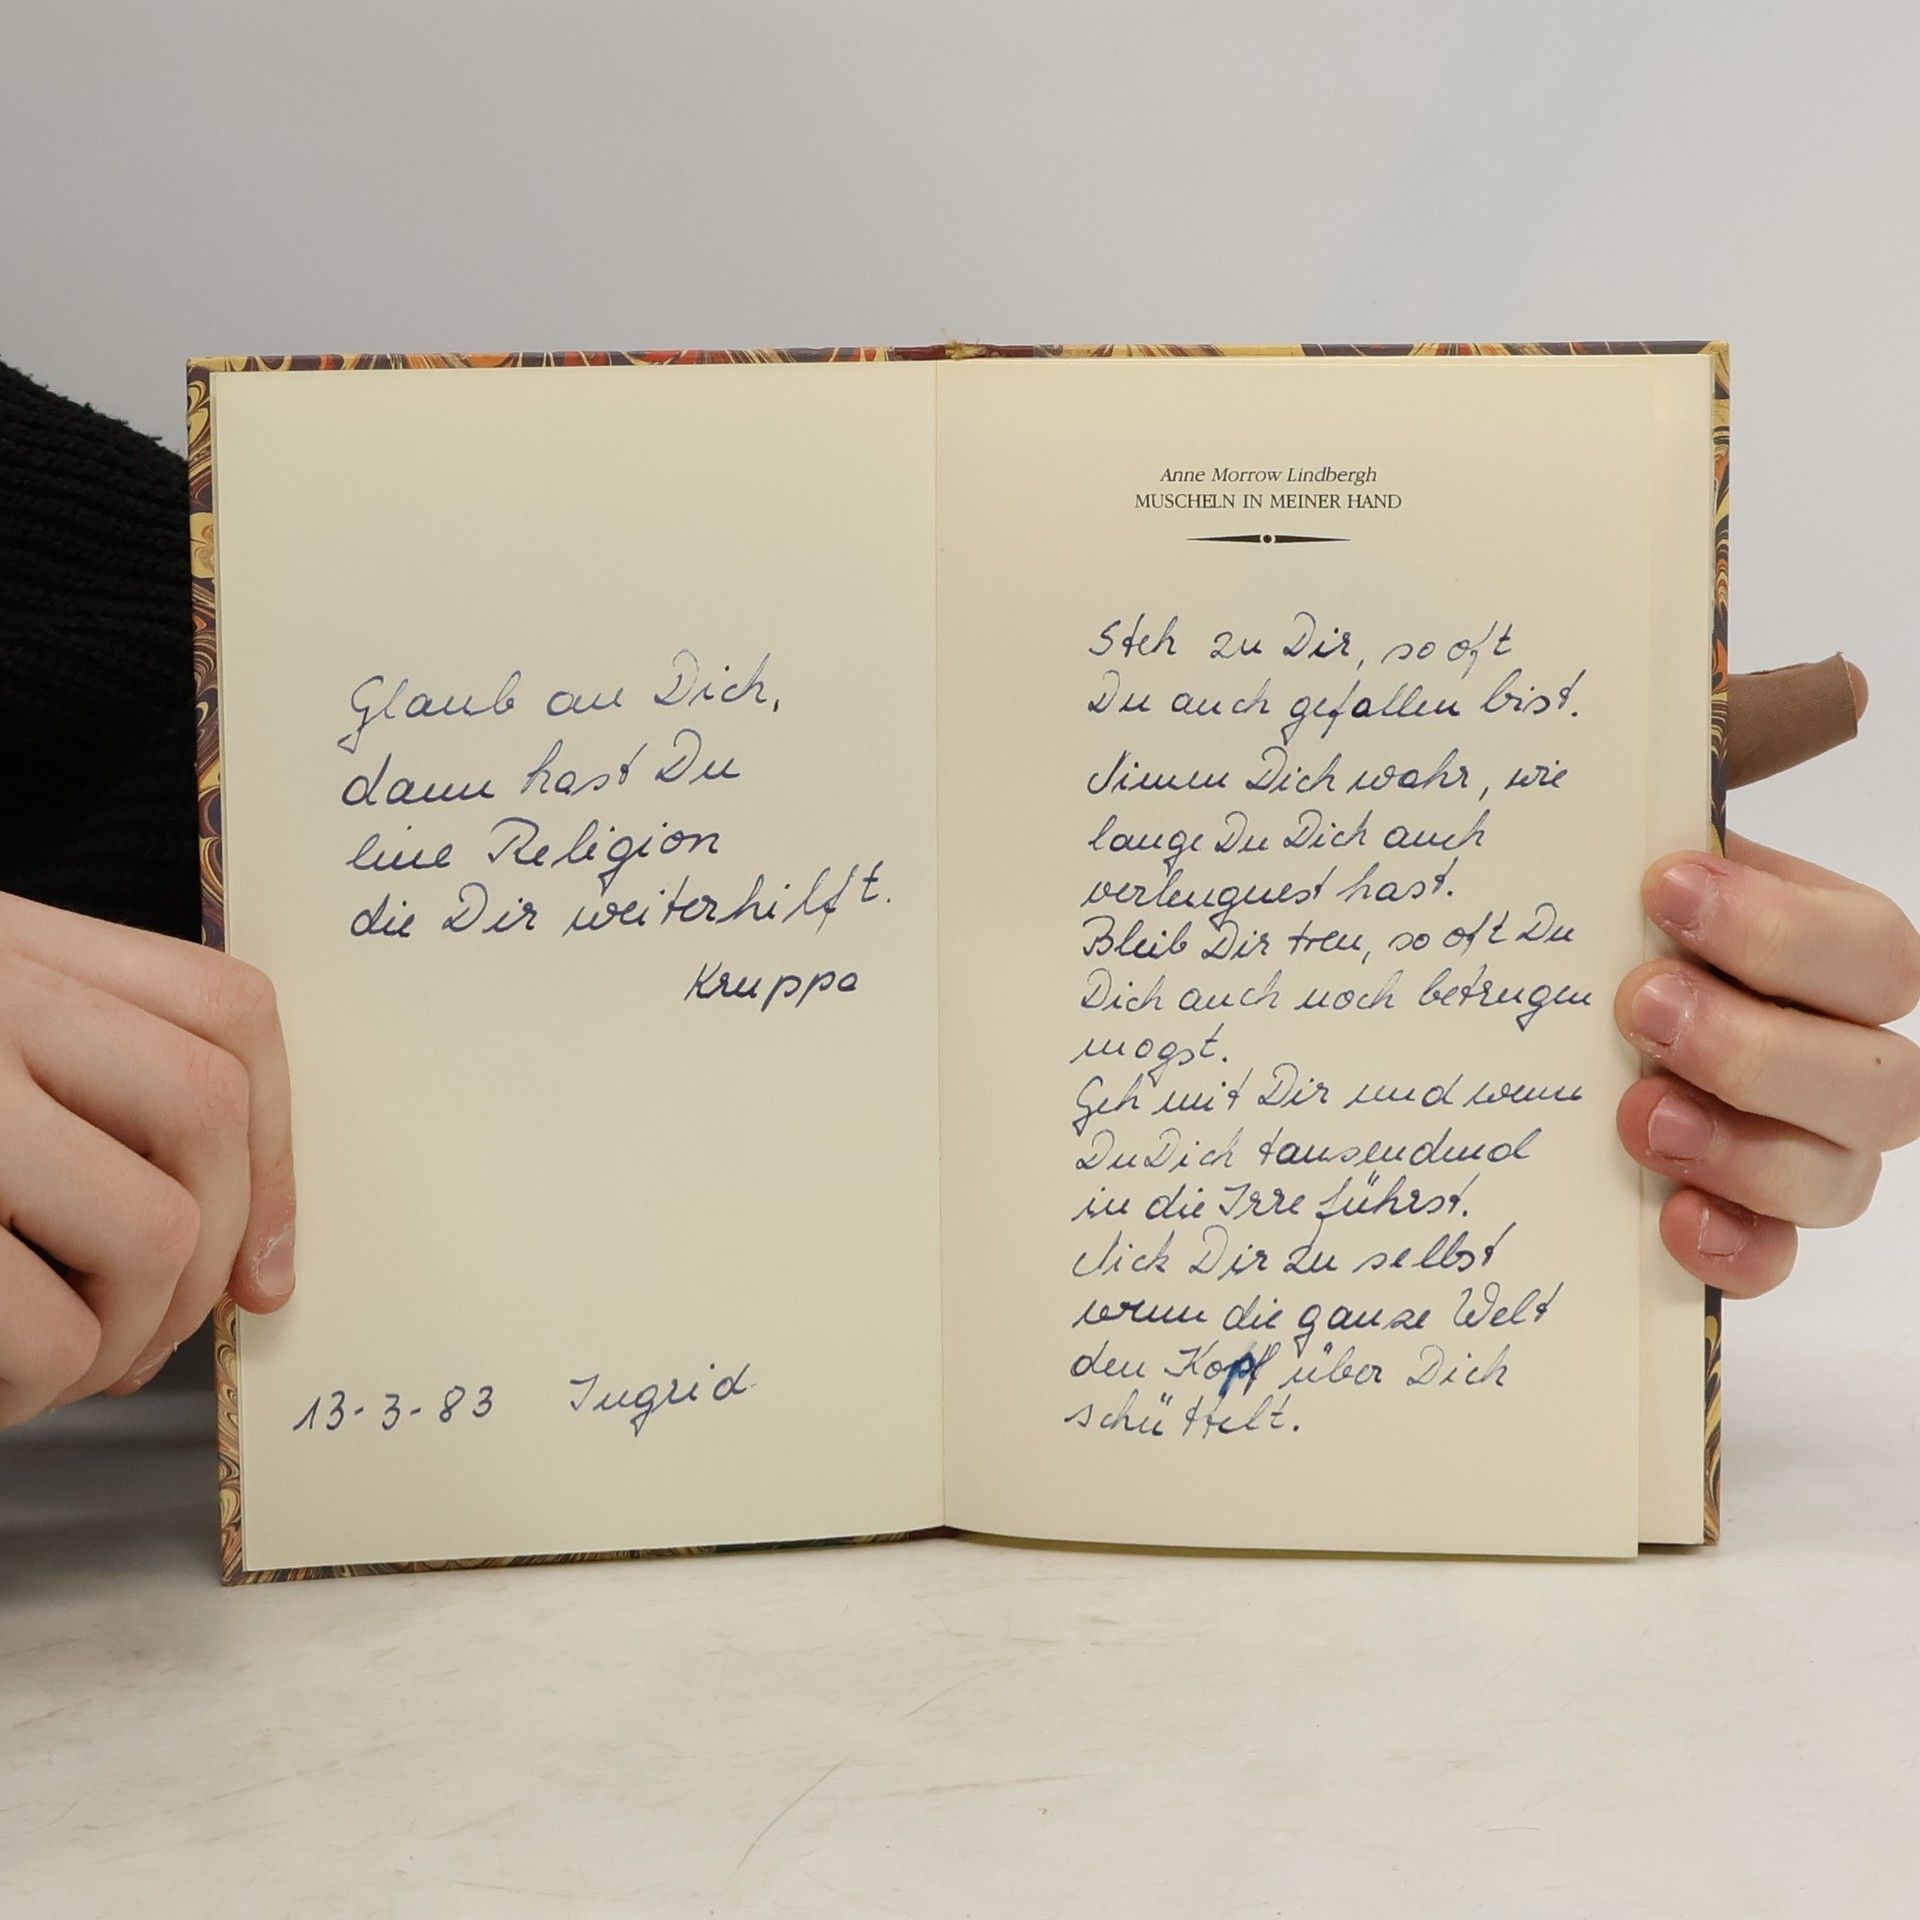 Glaub an Dich,
dann hast Du
eine Religion
die Dir weiterhilft.
Kruppa
13-3-83 Ingrid
Anne Morrow Lindbergh
MUSCHELN IN MEINER HAND
Steh zu Dir, so oft
Du auch gefallen bist.
Nimm Dich wahr, wie
lange Du Dich auch
verleugnest hast.
Bleib Dir treu, so oft Du
Dich auch noch betrugen
mogst.
Geh mit Dir und wenn
Du Dich tausendmal
in die Irre führst.
Nick Dir zu selbst
wenn die ganze Welt
den Kopf über Dich
schüttelt.